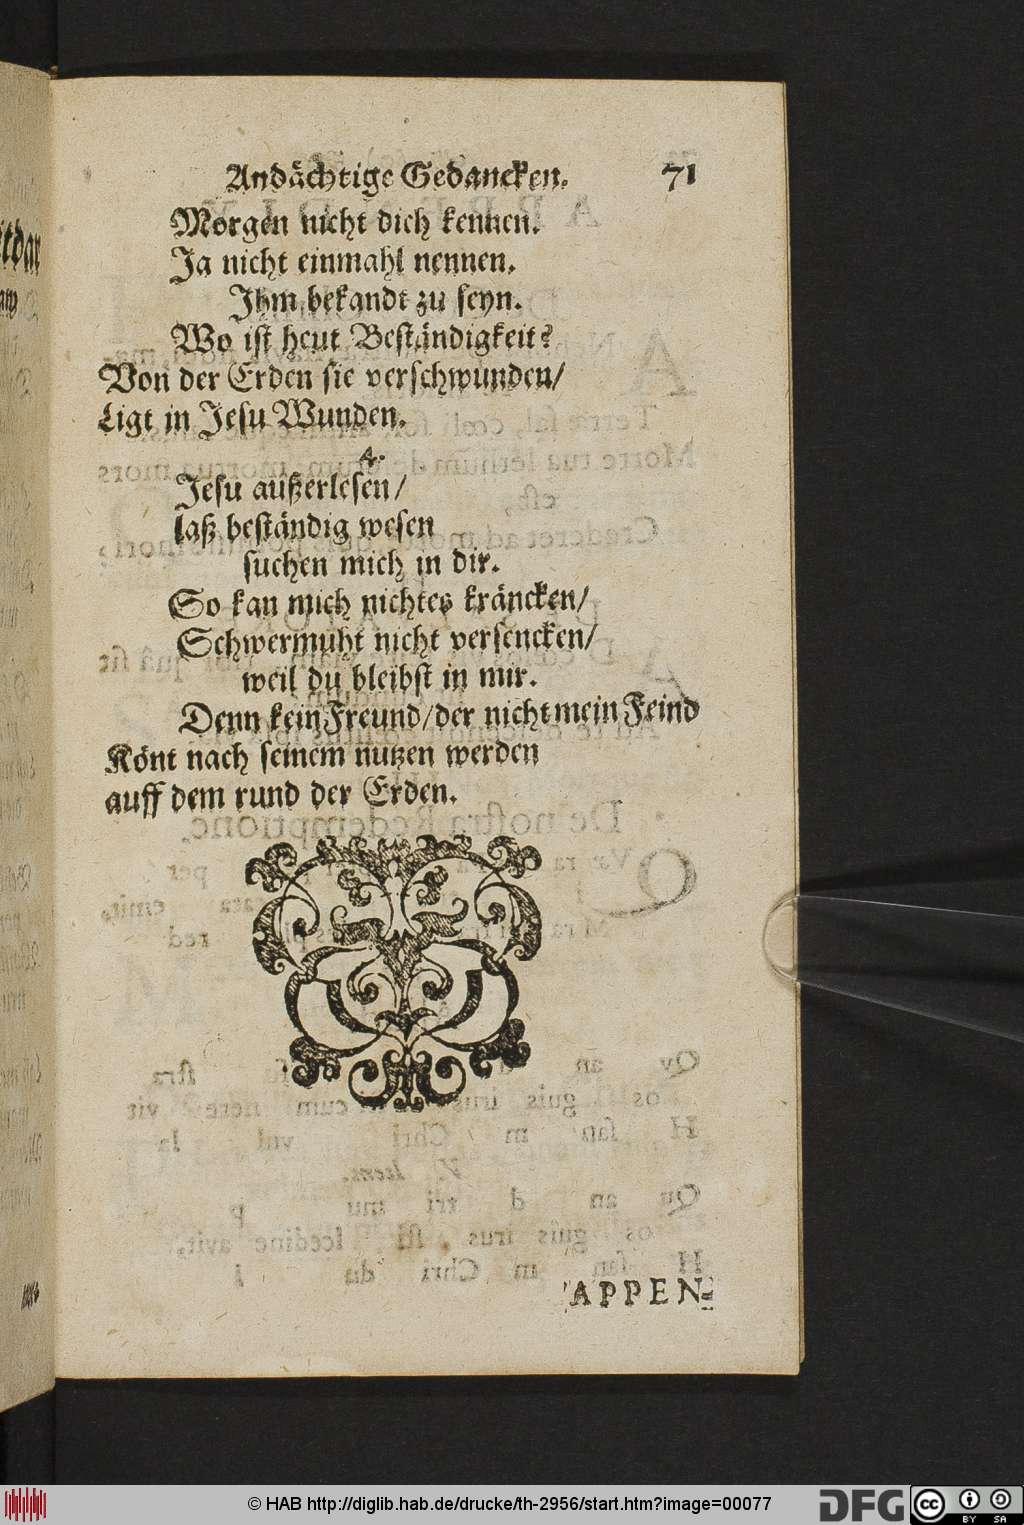 Andächtige Gedancken. 71
Morgen nicht dich kennen.
Ja nicht einmahl nennen.
Ihm bekandt zu seyn.
Wo ist heut Beständigkeit?
Von der Erden sie verschwunden/
Ligt in Jesu Wunden.
4.
Jesu außerlesen/
laß beständig wesen
suchen mich in dir.
So kan mich nichtes kräncken/
Schwermuht nicht versencken/
weil du bleibst in mir.
Denn kein Freund/der nicht mein Feind
Könt nach seinem nutzen werden
auff dem rund der Erden.
APPEN-
© HAB http://diglib.hab.de/drucke/th-2956/start.htm?image=00077
DFG
cc BY SA